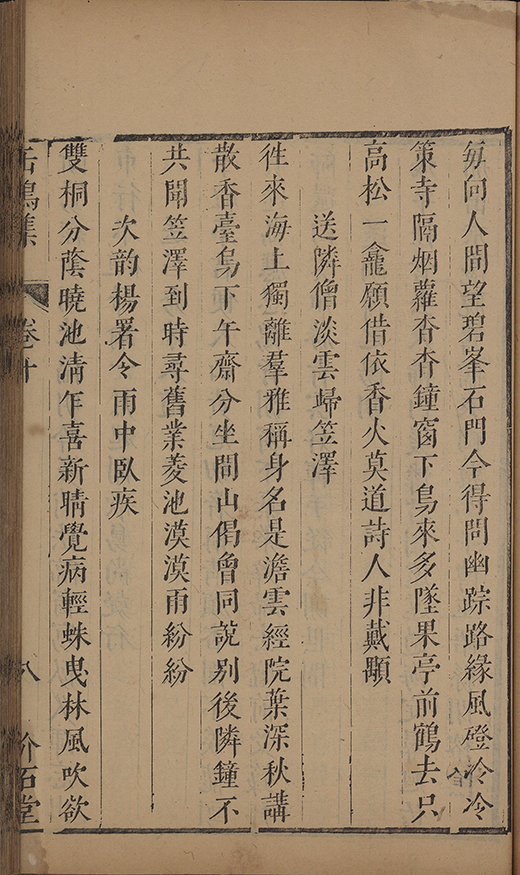 每向人間望碧峯石門今得問幽踪路緣風磴冷冷
策寺隔烟蘿杳杳鐘窗下鳥來多墜果亭前鶴去只
高松一龕願借依香火莫道詩人非戴顒
送隣僧淡雲歸笠澤
徃來海上獨離羣雅稱身名是澹雲經院葉深秋講
散香臺鳥下午齋分坐間山偈曾同說別後隣鐘不
共聞笠澤到時尋舊業菱池漠漠雨紛紛
次韵楊署令雨中臥疾
雙桐分蔭曉池清乍喜新晴覺病輕蛛曳林風吹欲
缶鳴集 卷十 八 介石堂